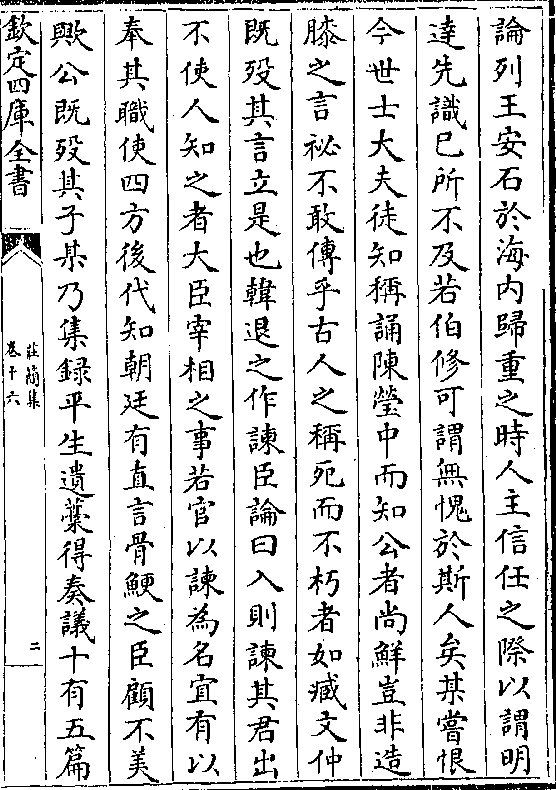 論列王安石於海内歸重之時人主信任之際以謂明
達先識已所不及若伯修可謂無愧於斯人矣某嘗恨
今世士大夫徒知稱誦陳瑩中而知公者尚鮮豈非造
膝之言祕不敢傳乎古人之稱死而不朽者如臧文仲
既殁其言立是也韓退之作諫臣論曰入則諫其君出
不使人知之者大臣宰相之事若官以諫為名宜有以
奉其職使四方後代知朝廷有直言骨鯁之臣顧不美
歟公既殁其子某乃集録平生遺藁得奏議十有五篇
欽定四庫全書
莊簡集
卷十六
二